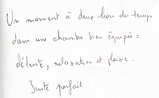 Un moment à deux hors du temps
dans une chambre bien équipée :
détente, relaxation et plaisir.
Juste parfait.